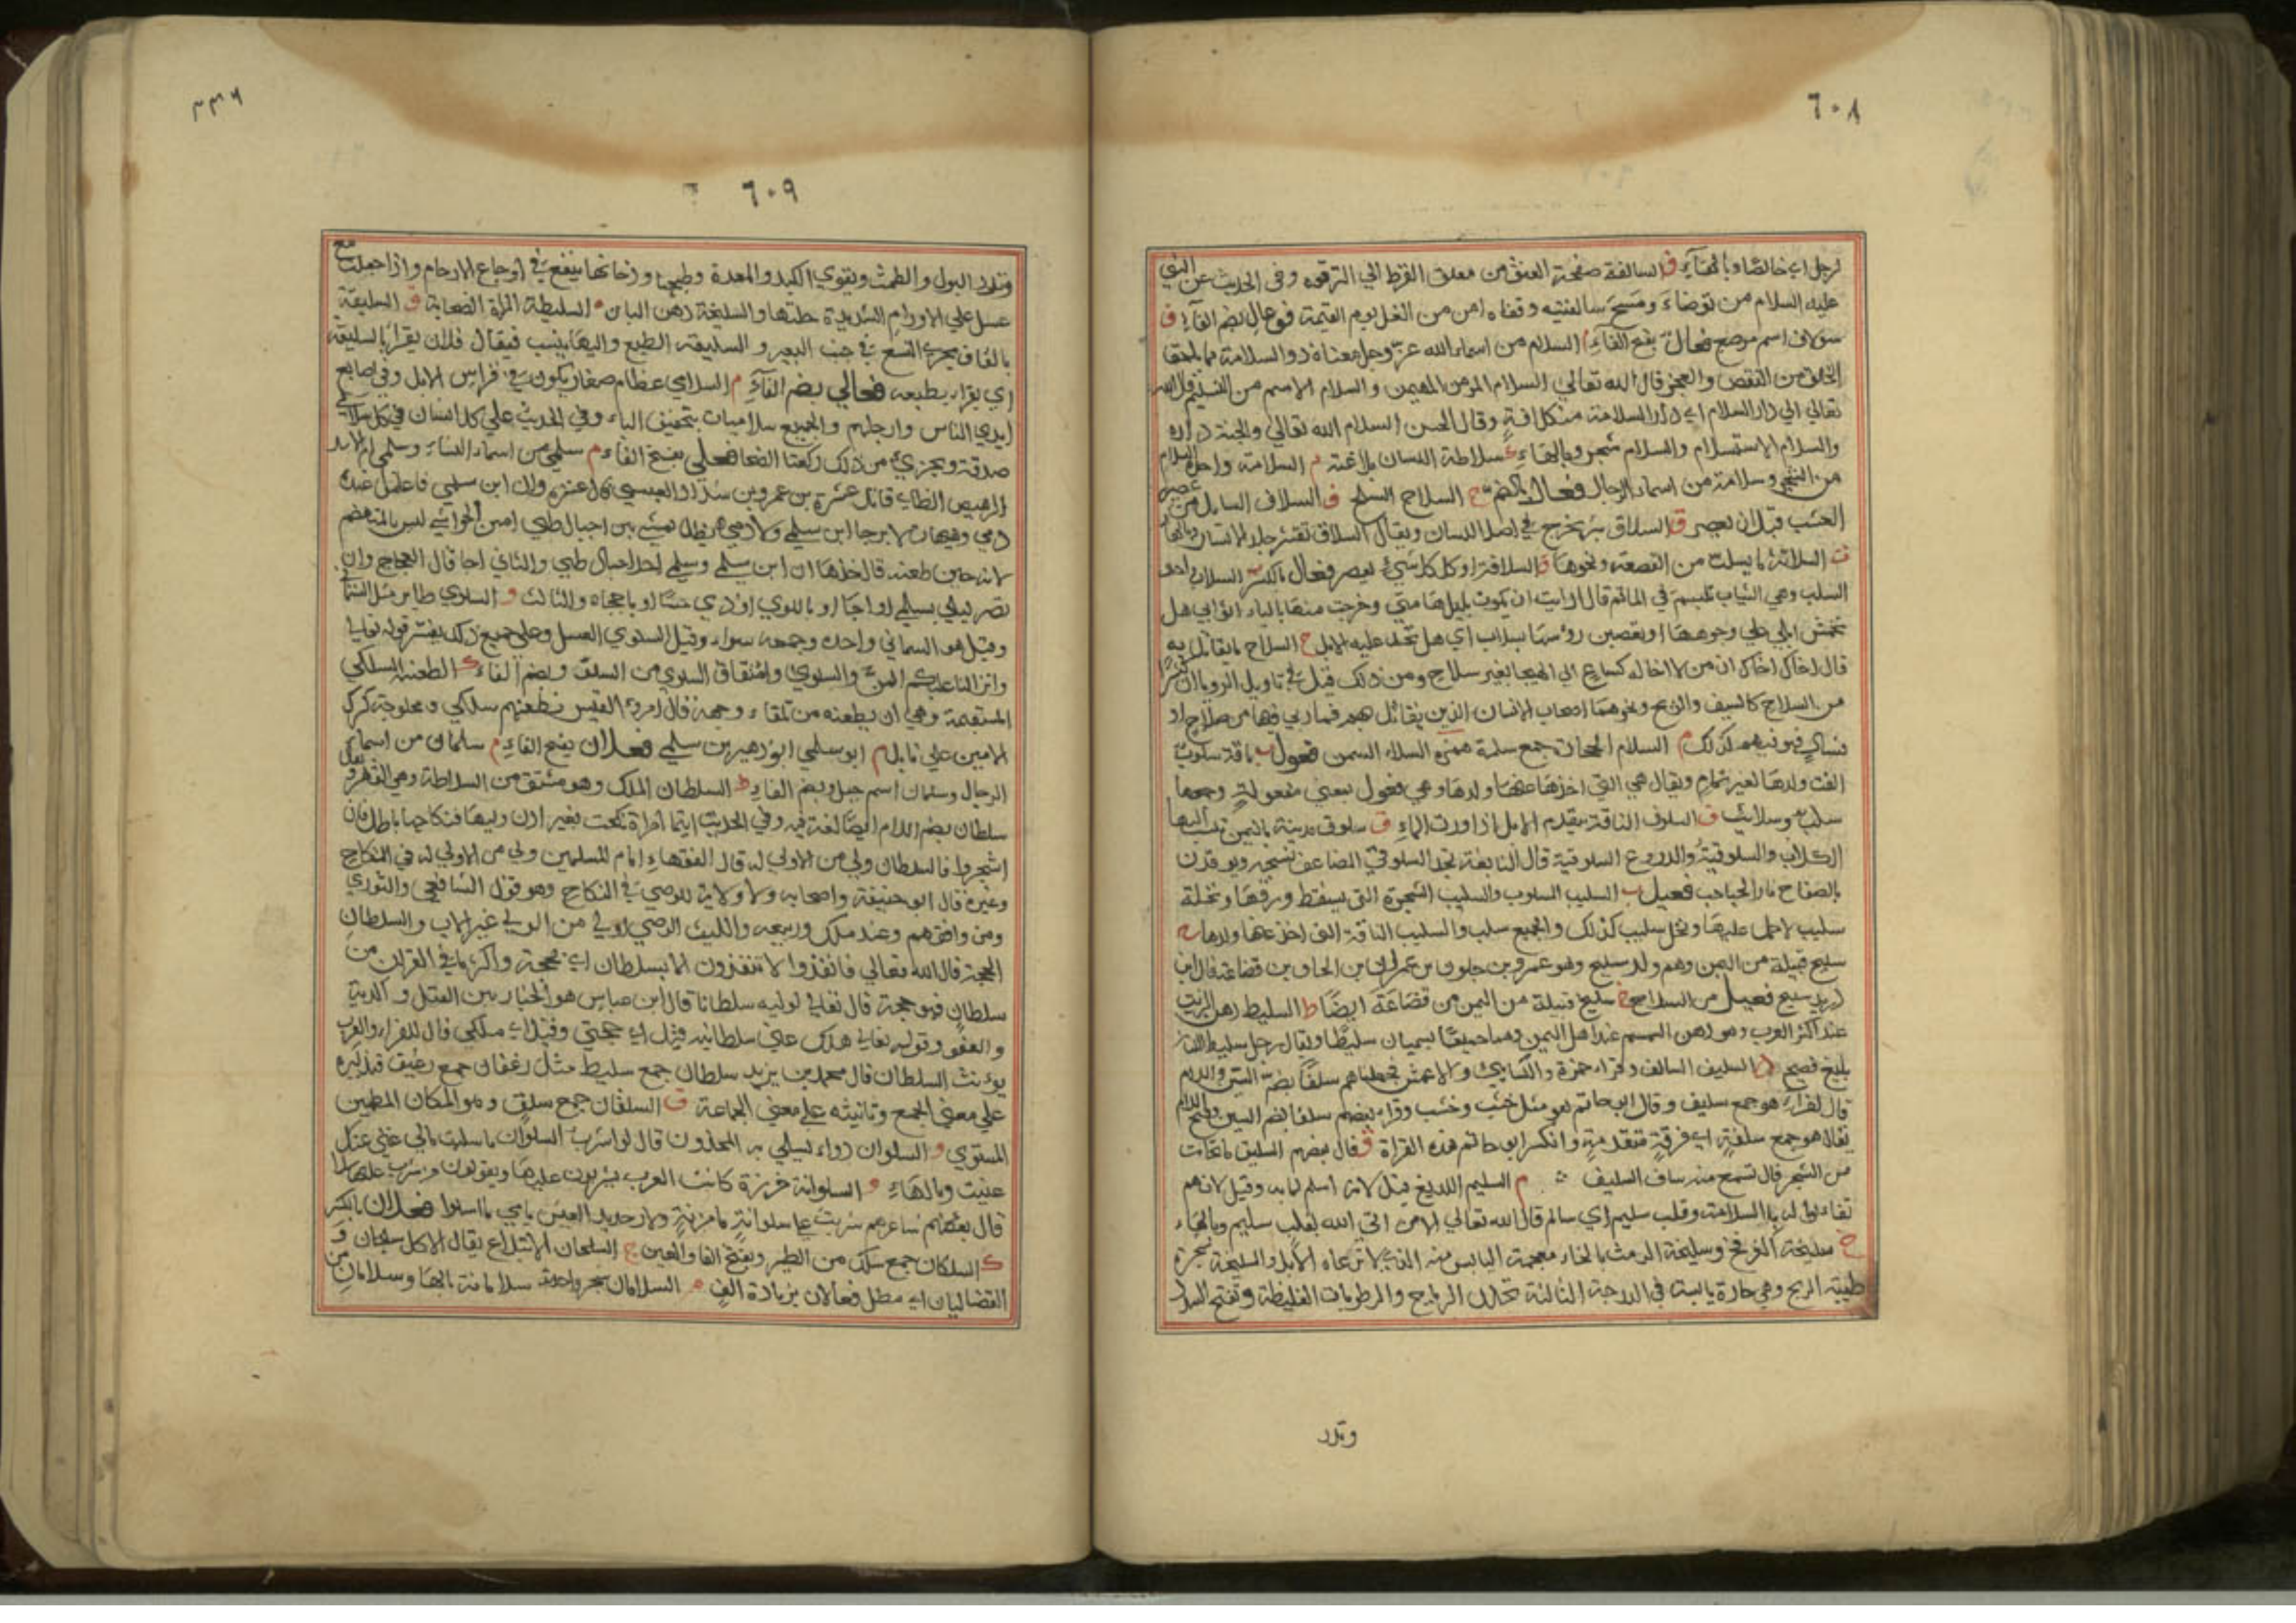 ٦٠٨
لرجل اي خالصا وبالهاء ف السالفة صفحة العنق من معلق القرط الي الترقوه وفي الحديث عن النبي
عليه السلام من توضاء ومسح سالفتيه وقفاه امن من الغل يوم القيمة فوعال بضم الفآء ف
سولاف اسم موضع فعال بفتح الفآء م السلام من اسماء الله عز وجل معناه ذو السلامة مما يلحق
الخلق من النقص والعجز قال الله تعالي السلام المومن المهيمن والسلام الاسم من التسليم قال الله
تعالي الي دار السلام اي دار السلامة من كل افة وقال الحسن السلام الله تعالي والجنة داره
والسلام الاستسلام والسلام شجر وبالهاء ط سلاطة اللسان بلاغته م السلامة واحدة السلام
من الشجر وسلامة من اسماء الرجال فعال بالضم ح السلاح السلح ف السلاف السايل من عصير
العنب قبل ان يعصر ق السلاق بثر يخرج في اصل اللسان ويقال السلاق تقشر جلد اللسان وبالهاء
ت السلاتة ما يسلت من القصعة ونحوها ف السلافة اول كل شيء يعصر فعال بالكسر ب السلاب احد
السلب وهي الثياب تلبس في الماتم قال ارايت ان بكرت بليل هامتي وخرجت منها باليا اثوابي هل
تخمش ابلي علي وجوهها او تعصبن رؤسها بسلاب اي هل تحد عليه الابل ح السلاح ما يقاتل به
قال اخاك اخاك ان من لا اخا له كساع الي الهيجا بغير سلاح ومن ذلك قيل في تاويل الرويا ان كثيرا
من السلاح كالسيف والرمح ونحوهما اصحاب الانسان الذين يقاتل بهم فما راي فيها من صلاح او
فساد فهو فيهم كذلك م السلام الحجارة جمع سلمة همزه السلاء السمن فعول ب ناقة سلوب
القت ولدها لغير تمام ويقال هي التي اخذ عنها ولدها وهي فعول بمعني مفعولة وجمعها
سلب وسلائب ف السلوف الناقة تتقدم الابل اذا وردت الماء ق سلوق مدينة باليمن تنسب اليها
الكلاب والسلوقية والدروع السلوقية قال النابغة تجد السلوقي المضاعف نسجه ويوقدن
بالصفاح نار الحباحب فعيل ب السليب المسلوب والسليب الشجرة التي يسقط ورقها ونخلة
سليب لا حمل عليها ونخل سليب كذلك والجميع سلب والسليب الناقة التي اخذ عنها ولدها ح
سليح قبيلة من اليمن وهم ولد سليح وهو عمرو بن حلوان بن عمران بن الحاف بن قضاعة قال ابن
دريد سليح فعيل من السلاح ح سليح قبيلة من اليمن من قضاعة ايضا ط السليط دهن الزيت
عند اكثر العرب وهو دهن السمسم عند اهل اليمن وهما جميعا يسميان سليطا ويقال رجل سليط اللسان
بليغ فصيح ف السليف السالف وقراء حمزة والكسايي والاعمش فجعلناهم سلفا بضم السين واللام
قال الفراء هو جمع سليف وقال ابو حاتم هو مثل خشب وخشب وقراء بعضهم سلفا بضم السين وفتح اللام
يقال هو جمع سلفة اي فرقة متقدمة وانكر ابو حاتم هذه القراة ق قال بعضهم السليق ما تحات
من الشجر قال تسمع منه ساف السليف م السليم اللديغ قيل لانه اسلم لما به وقيل لانهم
تفاءلوا له بالسلامة وقلب سليم اي سالم قال الله تعالي الا من اتي الله بقلب سليم وبالهاء
خ سليخة العرفج وسليخة الرمث بالخاء معجمة اليابس منه الذي لا ترعاه الابل والسليخة شجرة
طيبة الريح وهي حارة يابسة في الدرجة الثالثة تحلل الرياح والرطوبات الغليظة وتفتح السدد
وتدر
٣٣٦
٦٠٩
وتدر البول والطمث ويقوي الكبد والمعدة وطبيخها ودخانها ينفع في اوجاع الارحام واذا جعلت مع
عسل علي الاورام الشديدة حلتها والسليخة دهن البان ط السليطة المراة الصخابة ق السليقة
بالقاف مجري النسع في جنب البعير والسليقة الطبع واليها ينسب فيقال فلان يقرا بالسليقة
اي يقراء بطبعه فعالي بضم الفآء م السلامي عظام صغار يكون في فراسن الابل وفي اصابع
ايدي الناس وارجلهم والجميع سلاميات بتخفيف الياء وفي الحديث علي كل انسان في كل سلامي
صدقة ويجزي من ذلك ركعتا الضحا فعلي بفتح الفاء م سلمي من اسماء النساء وسلمي ابو الاسد
الرهيص الطايي قاتل عنترة بن عمرو بن شداد العبسي قال عنترة وان ابن سلمي فاعلموا عنده
دمي وهيهات لا يرجا ابن سلمي ولا دمي يظل يمشي بين اجبال طيي امين الحواشي ليس بالمتهضم
لانه حين طعنه قال خذها انا ابن سلمي وسلمي احد اجبال طيي والثاني اجا قال العجاج وان
تصر ليلي بسلمي او اجا او باللوي او ذي حسا او باججاه والثالث و السلوي طاير مثل السمانا
وقيل هو السماني واحده وجمعه سواء وقيل السلوي العسل وعلي جميع ذلك يفسر قوله تعالي
وانزلنا عليكم المن والسلوي واشتقاق السلوي من السلو وبضم الفاء ك الطعنة السلكي
المستقيمة وهي ان يطعنه من تلقاء وجهه قال امرؤ القيس نطعنهم سلكي ومخلوجة كرك
لامين علي نابل م ابو سلمي ابو زهير بن سلمي فعلان بفتح الفاء م سلمان من اسماء
الرجال وسلمان اسم جبل وبضم الفاء ط السلطان الملك وهو مشتق من السلاطة وهي القهر ويقال
سلطان بضم اللام ايضا لغة فيه وفي الحديث ايما امراة نكحت بغير اذن وليها فنكاحها باطل فان
اشتجروا فالسلطان ولي من لا ولي له قال الفقهاء امام المسلمين ولي من لا ولي له في النكاح
وغيره قال ابو حنيفة واصحابه ولا ولاية للوصي في النكاح وهو قول الشافعي والثوري
ومن وافقهم وعند ملك وربيعه والليث الوصي اولي من الولي غير الاب والسلطان
الحجة قال الله تعالي فانفذوا لا تنفذون الا بسلطان اي بحجة واكثر ما في القران من
سلطان فهو حجة قال تعالي لوليه سلطانا قال ابن عباس هو الخيار بين القتل والدية
والعفو وقوله تعالي هلك عني سلطانيه قيل اي حجتي وقيل اي ملكي قال الفراء والعرب
يؤنث السلطان قال محمد بن يزيد سلطان جمع سليط مثل رغفان جمع رغيف فتذكيره
علي معني الجمع وتانيثه علي معني الجماعة ق السلقان جمع سلق وهو المكان المطمين
المستوي و السلوان دواء يسلي به المحزون قال لو اشرب السلوان ما سليت مابي غني عنك
غنيت وبالهاء و السلوانة خرزة كانت العرب يشربون عليها ويقولون من شرب عليها سلا
قال بعضهم شاعرهم شربت علي سلوانة ماء مزنة ولا وجديد العيش يامي ما اسلوا فعلان بالكسر
ك السلكان جمع سلك من الطير وبفتح الفا والعين ج السلجان الابتلاع يقال الاكل سلجان و
القضا ليان اي مطل فعالان بزيادة الف م السلامان شجر واحدته سلامانة بالهاء وسلامان من